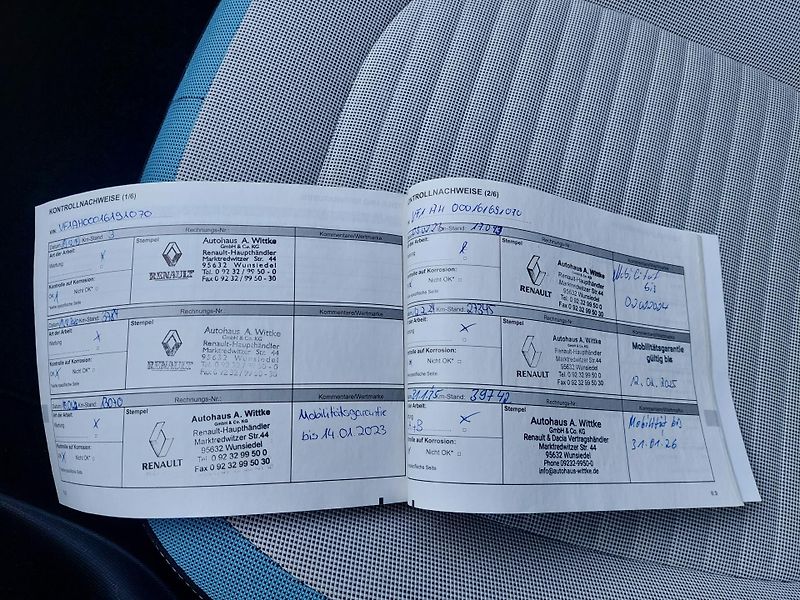 KONTROLLNACHWEISE (1/6)
VIN: VF1AH000161691070
Datum: Km-Stand: 9
Rechnungs-Nr.:
Kommentare/Wertmarke
Art der Arbeit:
Wartung x
Kontrolle auf Korrosion:
Nicht OK*
Stempel
RENAULT
Autohaus A. Wittke
GmbH & Co. KG
Renault-Haupthändler
Marktredwitzer Str. 44
95632 Wunsiedel
Tel. 0 92 32 / 99 50 - 0
Fax 0 92 32 / 99 50 - 30
Datum: Km-Stand:
Rechnungs-Nr.:
Kommentare/Wertmarke
Art der Arbeit:
Wartung x
Kontrolle auf Korrosion:
Nicht OK*
Stempel
RENAULT
Autohaus A. Wittke
GmbH & Co. KG
Renault-Haupthändler
Marktredwitzer Str. 44
95632 Wunsiedel
Tel. 0 92 32 / 99 50 - 0
Fax 0 92 32 / 99 50 - 30
Datum: Km-Stand: 13070
Rechnungs-Nr.:
Kommentare/Wertmarke
Art der Arbeit:
Wartung x
Kontrolle auf Korrosion:
Nicht OK*
Stempel
RENAULT
Autohaus A. Wittke
GmbH & Co. KG
Renault-Haupthändler
Marktredwitzer Str.44
95632 Wunsiedel
Tel. 0 92 32 99 50 0
Fax 0 92 32 99 50 30
Mobilitätsgarantie
bis 14.01.2023
KONTROLLNACHWEISE (2/6)
VF1 AH 000161691070
Km-Stand: 17093
Rechnungs-Nr.:
Kommentare/Wertmarke
Art der Arbeit:
Kontrolle auf Korrosion:
Nicht OK*
Stempel
RENAULT
Autohaus A. Wittke
GmbH & Co. KG
Renault-Haupthändler
Marktredwitzer Str.44
95632 Wunsiedel
Tel. 0 92 32 99 50 0
Fax 0 92 32 99 50 30
bis
Km-Stand: 27845
Rechnungs-Nr.:
Kommentare/Wertmarke
Art der Arbeit:
x
Kontrolle auf Korrosion:
Nicht OK*
Stempel
RENAULT
Autohaus A. Wittke
GmbH & Co. KG
Renault-Haupthändler
Marktredwitzer Str.44
95632 Wunsiedel
Tel. 0 92 32 99 50 0
Fax 0 92 32 99 50 30
Mobilitätsgarantie
gültig bis
12.01.2025
Km-Stand: 39742
Rechnungs-Nr.:
Kommentare/Wertmarke
Art der Arbeit:
x
Kontrolle auf Korrosion:
Nicht OK*
Stempel
Autohaus A. Wittke
GmbH & Co. KG
Renault & Dacia Vertragshändler
Marktredwitzer Str. 44
95632 Wunsiedel
Phone 09232-9950-0
info@autohaus-wittke.de
Mobilität bis
31.01.26